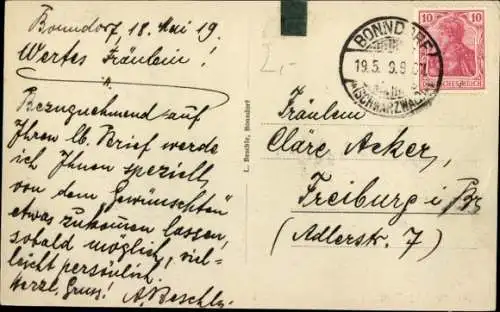 Bonndorf, 18. Mai 19.
Wertes Fräulein!
Bezugnehmend auf
Ihren lb. Brief werde
ich Ihnen speziell
von dem Gewünschten
etwas zukommen lassen,
sobald möglich, viel-
leicht persönlich.
Herzl. Gruss! A. Beschle.
2,-
L. Beschle, Bonndorf
BONNDORF
19.5.
(SCHWARZWALD)
10 10
DEUTSCHES REICH
Fräulein
Cläre Acker,
Freiburg i/Br
(Adlerstr. 7)